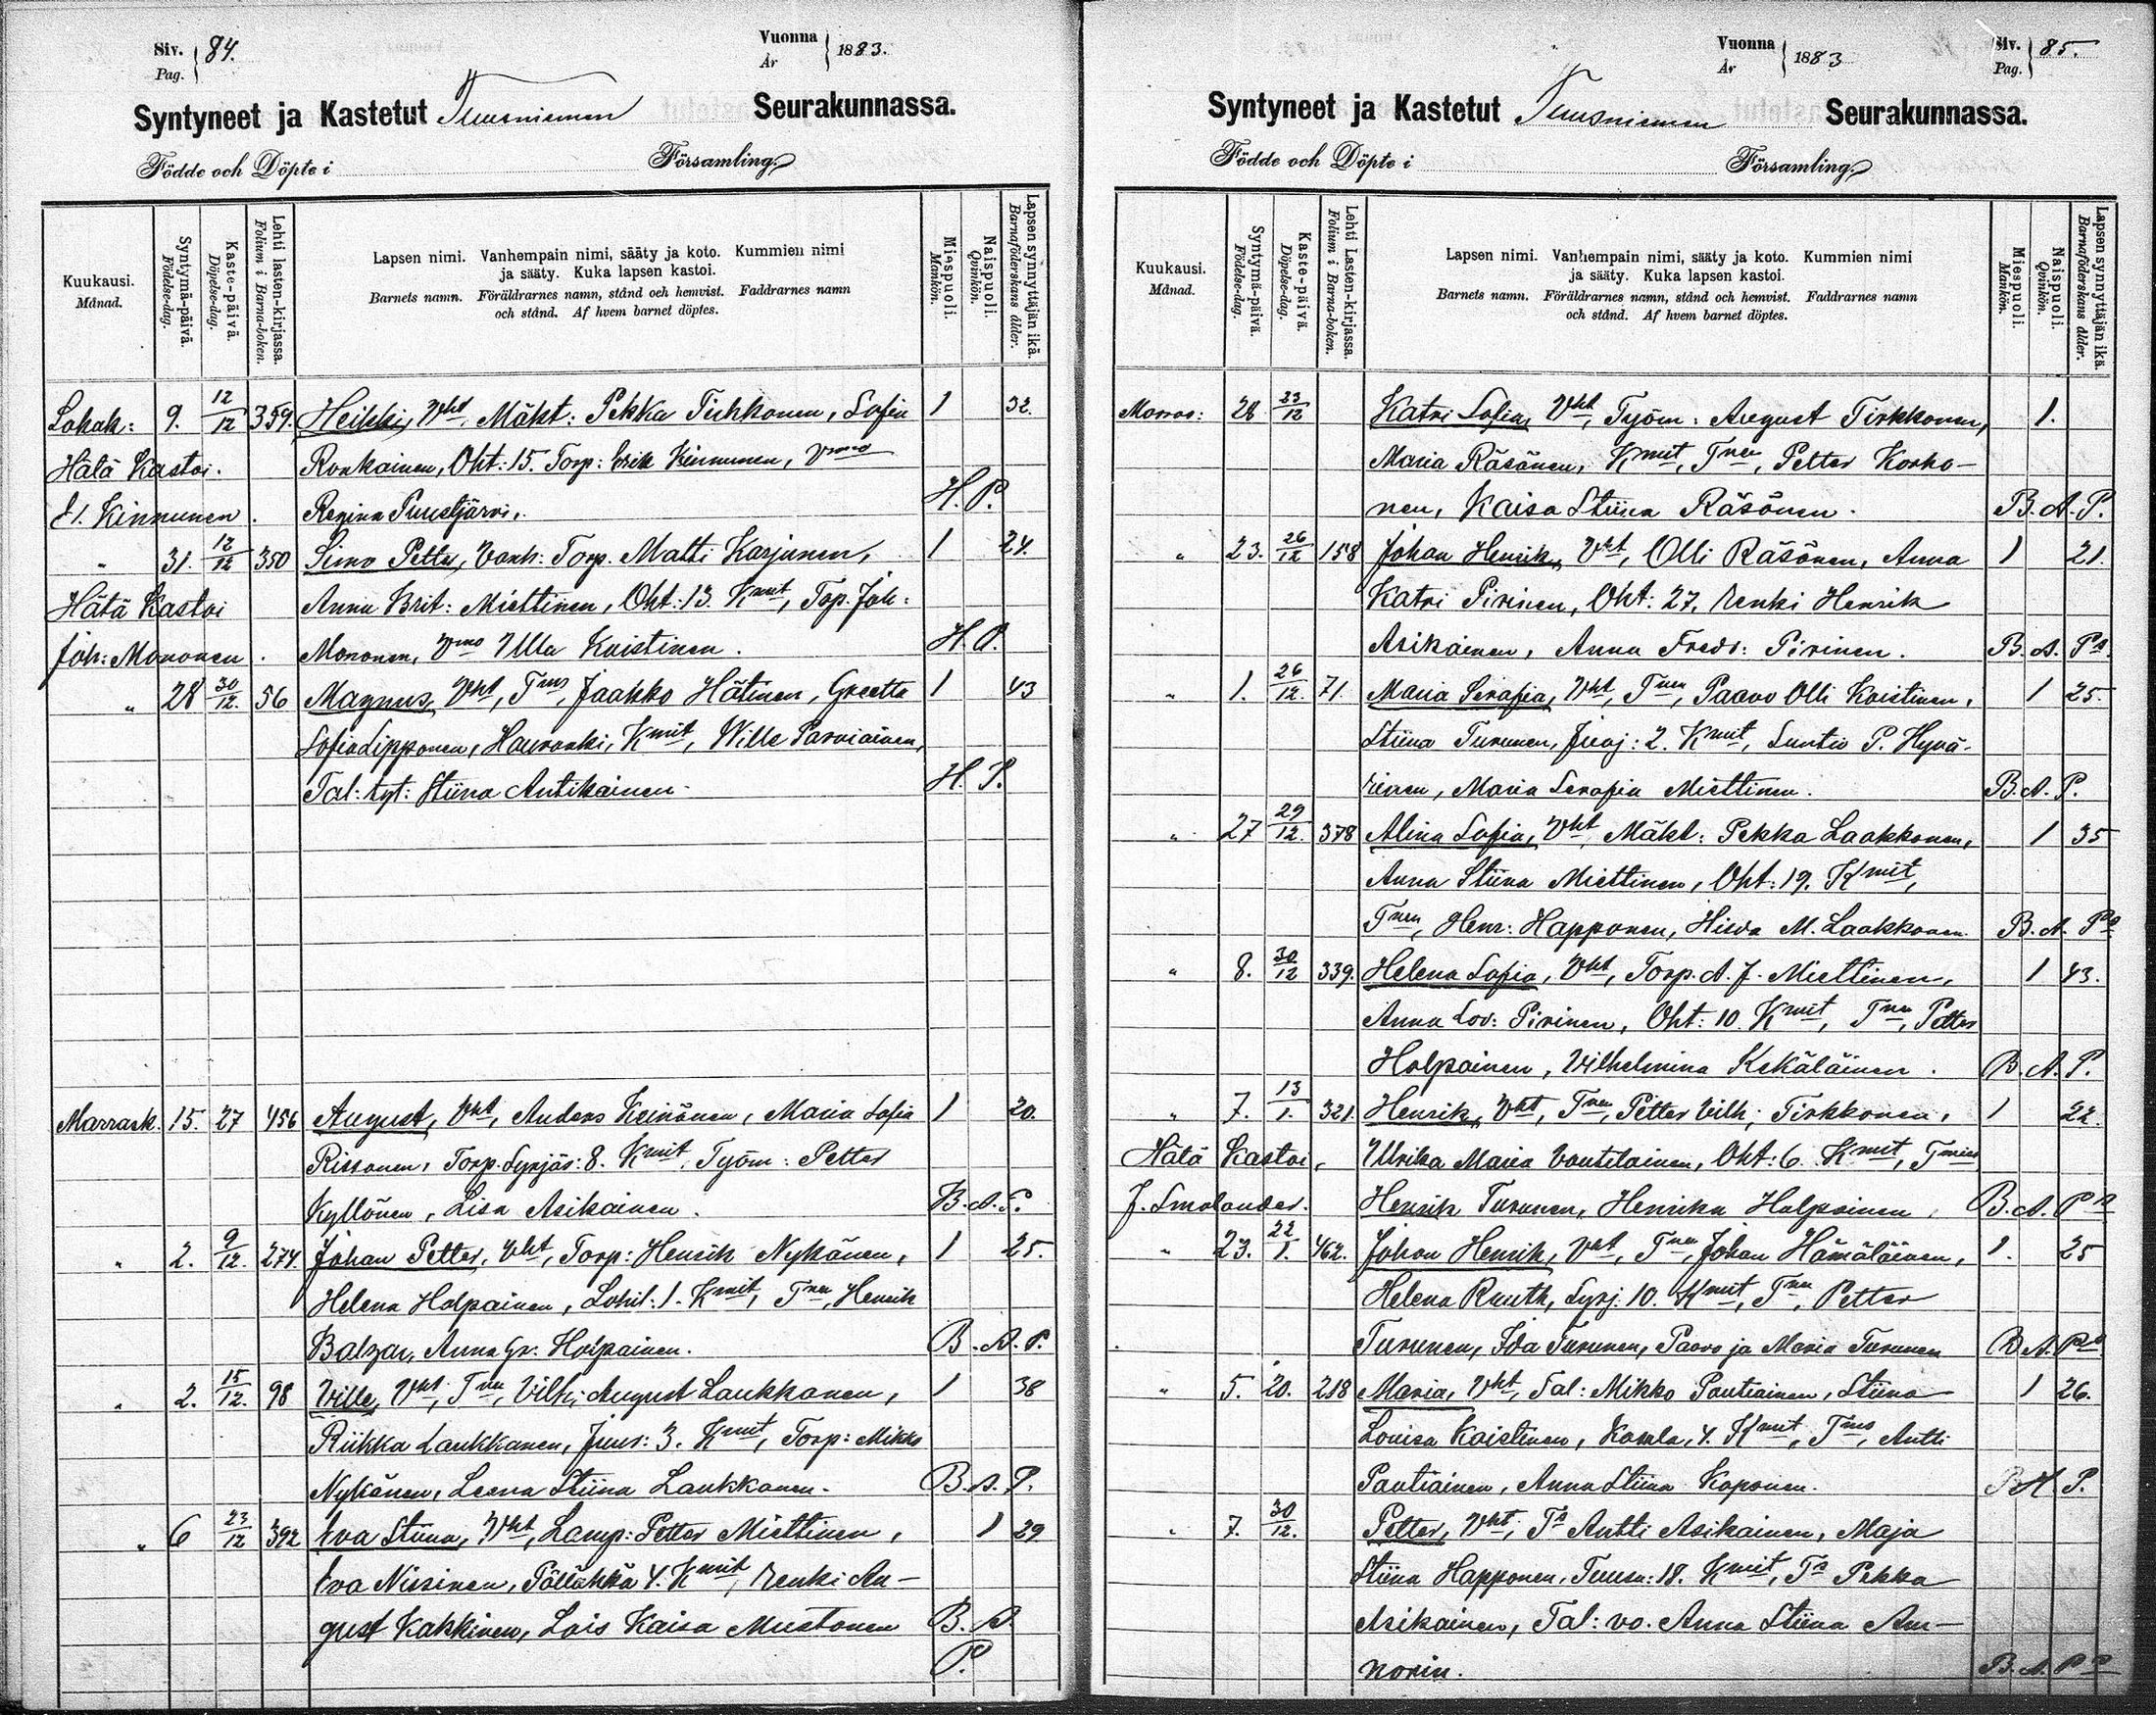 Siv. Pag. 84.
Vuonna År 1883.
Syntyneet ja Kastetut Tuusniemen Seurakunnassa.
Födde och Döpte i Församling.
Kuukausi. Månad.
Syntymä-päivä. Födelse-dag.
Kaste-päivä. Döpelse-dag.
Lehti lasten-kirjassa. Folium i Barna-boken.
Lapsen nimi. Vanhempain nimi, sääty ja koto. Kummien nimi
ja sääty. Kuka lapsen kastoi.
Barnets namn. Föräldrarnes namn, stånd och hemvist. Faddrarnes namn
och stånd. Af hvem barnet döptes.
Miespuoli. Mankön.
Naispuoli. Qvinkön.
Lapsen synnyttäjän ikä. Barnaföderskans ålder.
Lokak: 9. 12/12 359. Heikki, Vht, Mäkt: Pekka Tichkonen, Sofia 1 32.
Hätä Kastoi. Ronkainen, Oht: 15. Torp: Erik Kinnunen, Vmo
El. Kinnunen. Regina Puustjärvi. H. P.
" 31. 12/12 350 Simo Petter, Vanh: Torp. Matti Karjunen, 1 24.
Hätä Kastoi Anna Brit: Miettinen, Oht: 13. Kmit, Top. Joh:
Joh: Mononen. Mononen, Vmo Ulla Kaistinen. H. P.
" 28 30/12. 56 Magnus, Vht, Tms, Jaakko Hätinen, Greetta 1 43
Sofia Lipponen, Hauranki, Kmit, Wille Parviainen,
Tal: tyt: Stiina Antikainen. H. P.
Marrask. 15. 27 456 August, Vht, Anders Keinönen, Maria Sofia 1 20.
Rissanen, Torp. Syrjäs: 8. Kmit, Työm: Petter
Kyllönen, Lisa Asikainen. B. A. P.
" 2. 9/12. 274. Johan Petter, Vht, Torp: Henrik Nykänen, 1 25.
Helena Holpainen, Lohil: 1. Kmit, Tnen, Henrik
Balzar, Anna Gr. Holpainen. B. A. P.
" 2. 15/12. 98 Ville, Vht, Tnen, Vilh; August Laukkanen, 1 38
Riikka Laukkanen, Juur: 3. Kmit, Torp: Mikko
Nykänen, Leena Stiina Laukkanen. B. A. P.
" 6 23/12 392 Eva Stiina, Vht, Lamp: Petter Miettinen, 1 29.
Eva Nissinen, Pöllähkä 4. Kmit, Renki Au-
gust Kahkinen, Lois Kaisa Mustonen B. A.
P.
Vuonna År 1883
Siv. Pag. 85.
Syntyneet ja Kastetut Tuusniemen Seurakunnassa.
Födde och Döpte i Församling.
Kuukausi. Månad.
Syntymä-päivä. Födelse-dag.
Kaste-päivä. Döpelse-dag.
Lehti Lasten-kirjassa. Folium i Barna-boken.
Lapsen nimi. Vanhempain nimi, sääty ja koto. Kummien nimi
ja sääty. Kuka lapsen kastoi.
Barnets namn. Föräldrarnes namn, stånd och hemvist. Faddrarnes namn
och stånd. Af hvem barnet döptes.
Miespuoli. Mankön.
Naispuoli. Qvinkön.
Lapsen synnyttäjän ikä. Barnaföderskans ålder.
Marras: 28 23/12 Katri Sofia, Vht, Työm: August Tirkkonen, 1.
Maria Räsänen, Kmit, Tnen, Petter Korho-
nen, Kaisa Stiina Räsänen. B. A. P.
" 23. 26/12 158 Johan Henrik, Vht, Olli Räsönen, Anna 1 21.
Katri Pirinen, Oht: 27, Renki Henrik
Asikainen, Anna Fredr: Pirinen. B. A. Pa.
" 1. 26/12. 71. Maria Serafia, Vht, Tnen, Paavo Olli Kaistinen, 1 25.
Stiina Turunen, Juoj: 2. Kmit, Suntio P. Hyvä-
rinen, Maria Serafia Miettinen. B. A. P.
" 27 29/12. 378 Alina Sofia, Vht, Mäkt: Pekka Laakkonen, 1 35
Anna Stiina Miettinen, Oht: 19. Kmit,
Tnen, Henr: Happonen, Hilda M. Laakkonen. B. A. Pa
" 8. 30/12 339. Helena Sofia, Vht, Torp. A. J. Miettinen, 1 43.
Anna Lov: Pirinen, Oht: 10. Kmit, Tnen, Petter
Holpainen, Vilhelmina Kekäläinen. B. A. P.
" 7. 13/1. 321. Henrik, Vht, Tnen, Petter Vilh; Tirkkonen, 1 22.
Hätä Kastoi, Ulrika Maria Voutilainen, Oht: 6. Kmit, Tmies
J. Smolander. Henrik Turunen, Henrika Holpainen, B. A. Pa
" 23. 22/1. 462. Johan Henrik, Vht, Tnen, Johan Hämäläinen, 1. 25
Helena Ruuth, Syrj. 10. Kmit, Tnen, Petter
Turunen, Ida Turunen, Paavo ja Maria Turunen B. A. Pa
" 5. 20. 218 Maria, Vht, Tal: Mikko Pautiainen, Stiina 1 26.
Lovisa Kaistinen, Kosula, 4. Kmit, Tms, Antti
Pautiainen, Anna Stiina Koponen. B A P.
" 7. 30/12. Petter, Vht, Ts Antti Asikainen, Maja
Stiina Happonen, Tuusn: 18. Kmit, Ts Pekka
Asikainen, Tal: vo. Anna Stiina Am-
norin. B. A. Pa